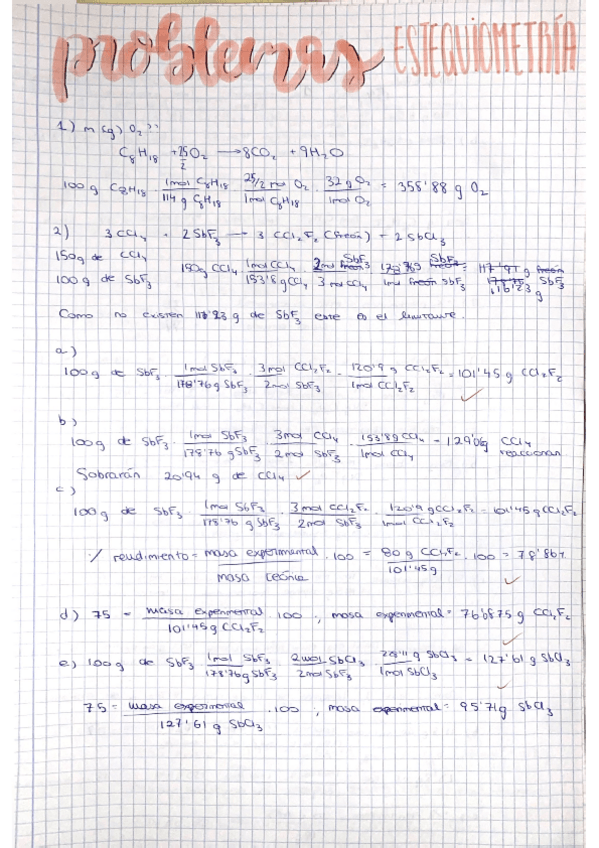 problemas ESTEQUIOMETRÍA
1) m (g) O₂ ??
C₈H₁₈ + 25/2 O₂ → 8CO₂ + 9H₂O
100 g C₈H₁₈ · 1mol C₈H₁₈/114 g C₈H₁₈ · 25/2 mol O₂/1mol C₈H₁₈ · 32 g O₂/1mol O₂ = 358'88 g O₂
2) 3 CCl₄ + 2 SbF₃ → 3 CCl₂F₂ (freón) + 2 SbCl₃
150g de CCl₄
100 g de SbF₃
150g CCl₄ · 1mol CCl₄/153'8 g CCl₄ · 2mol SbF₃/3 mol CCl₄ · 178'76g SbF₃/1mol SbF₃ = 116'23 g SbF₃
Como no existen 116'23 g de SbF₃ este es el limitante.
a)
100g de SbF₃ · 1mol SbF₃/178'76g SbF₃ · 3mol CCl₂F₂/2mol SbF₃ · 120'9 g CCl₂F₂/1mol CCl₂F₂ = 101'45 g CCl₂F₂
b)
100g de SbF₃ · 1mol SbF₃/178'76 g SbF₃ · 3mol CCl₄/2 mol SbF₃ · 153'8g CCl₄/1mol CCl₄ = 129'06g CCl₄ reaccionan
Sobrarán 20'94 g de CCl₄
c)
100g de SbF₃ · 1mol SbF₃/178'76 g SbF₃ · 3mol CCl₂F₂/2mol SbF₃ · 120'9 g CCl₂F₂/1mol CCl₂F₂ = 101'45 g CCl₂F₂
% rendimiento = masa experimental/masa teórica · 100 = 80 g CCl₂F₂/101'45g · 100 = 78'86%
d) 75 = masa experimental/101'45g CCl₂F₂ · 100 ; masa experimental = 76'0875 g CCl₂F₂
e) 100g de SbF₃ · 1mol SbF₃/178'76g SbF₃ · 2mol SbCl₃/2mol SbF₃ · g SbCl₃/1mol SbCl₃ = 127'61 g SbCl₃
75 = masa experimental/127'61 g SbCl₃ · 100 ; masa experimental = 95'71g SbCl₃